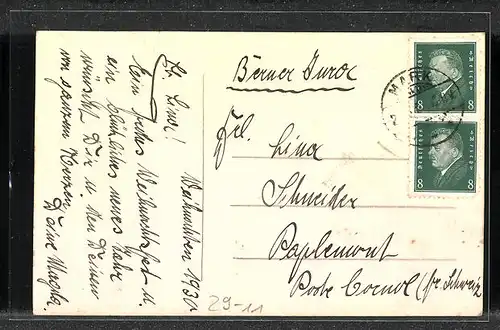 Weihnachten 1930
Lb. Lina!
Ein frohes Weihnachtsfest u.
ein glückliches neues Jahr
wünscht Dir u. den Deinen
von ganzem Herzen
Deine Martha.
Berner Jura
Frl. Lina
Schneider
Paplemont
Poste Cornol (fr. Schweiz
29-11
MARK
Deutsches Reich
8 8
Deutsches Reich
8 8